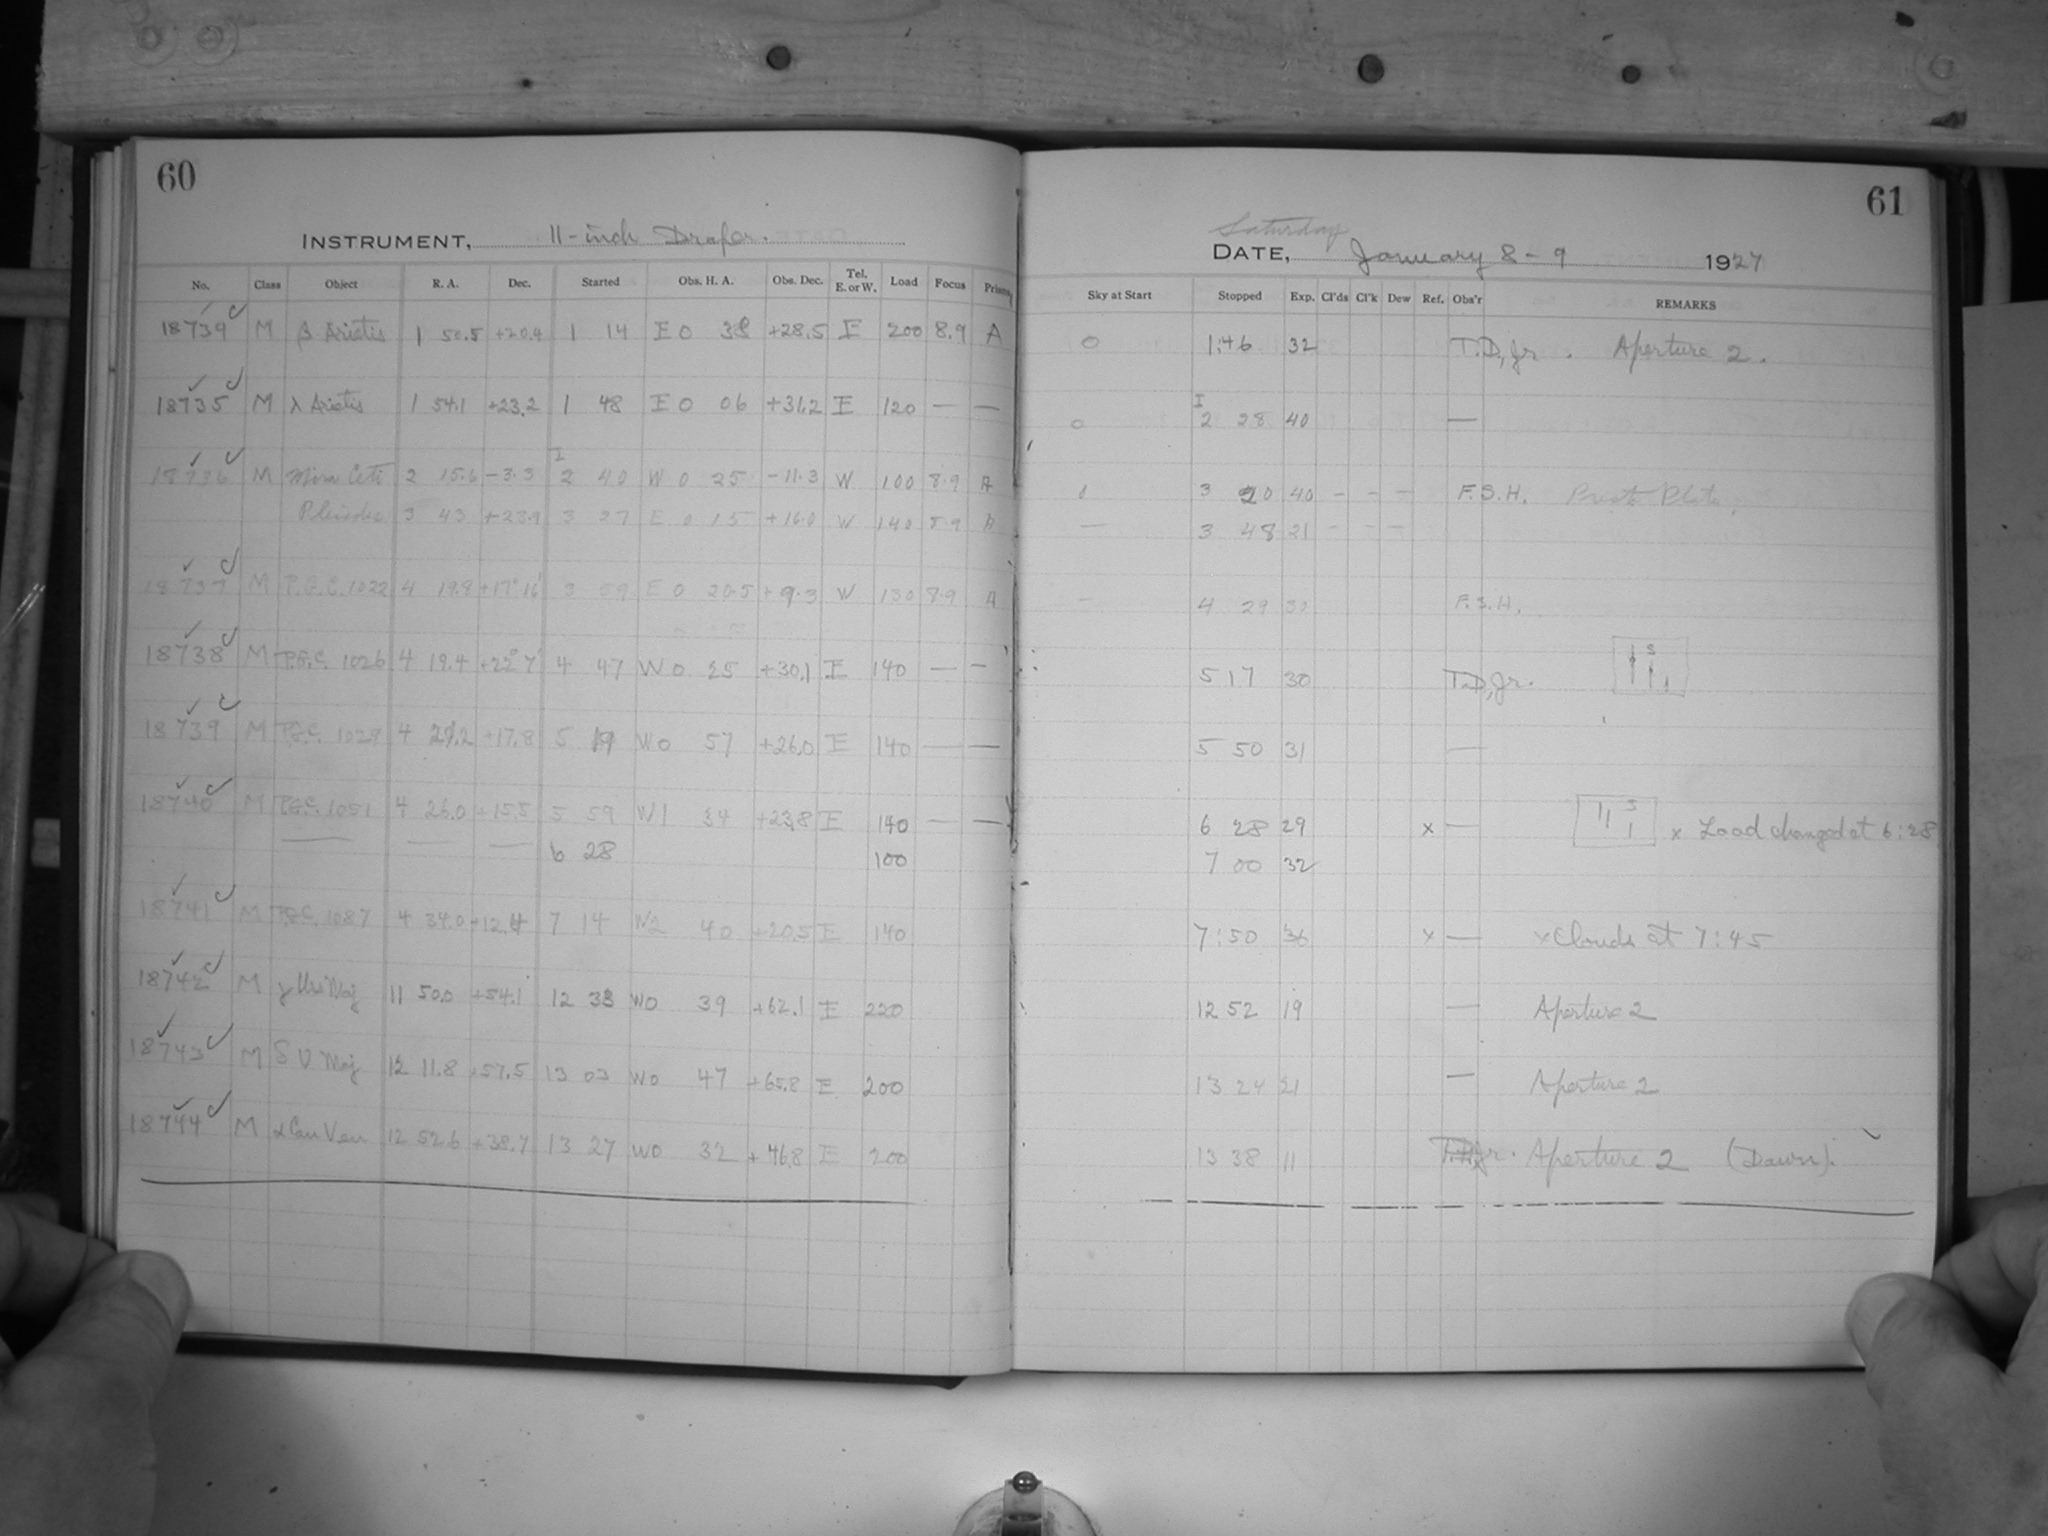 60
INSTRUMENT, 11-inch Draper.
No. Class Object R. A. Dec. Started Obs. H. A. Obs. Dec. Tel. E. or W. Load Focus Prisms
18739 M β Arietis 1 50.5 +20.4 1 14 E 0 38 +28.5 E 200 8.9 A
18735 M λ Arietis 1 54.1 +23.2 1 48 E 0 06 +31.2 E 120 — —
18736 M Mira Ceti 2 15.6 -3.3 2 40 W 0 25 -11.3 W 100 8.9 A
Pleiades 3 43 +23.9 3 27 E 0 15 +16.0 W 140 8.9 A
18737 M P.G.C. 1022 4 19.8 +17° 16' 3 59 E 0 20.5 +9.3 W 130 8.9 A
18738 M P.G.C. 1026 4 19.4 +22° 7' 4 47 W 0 25 +30.1 E 140 — —
18739 M P.G.C. 1029 4 21.2 +17.8 5 19 W 0 57 +26.0 E 140 — —
18740 M P.G.C. 1051 4 26.0 +15.5 5 59 W 1 34 +23.8 E 140 — —
— — — 6 28 100
18741 M P.G.C. 1087 4 34.0 +12.4 7 14 W 2 40 +20.5 E 140
18742 M γ Urs Maj 11 50.0 +54.1 12 33 W 0 39 +62.1 E 220
18743 M δ U Maj 12 11.8 +57.5 13 03 W 0 47 +65.8 E 200
18744 M α Can Ven 12 52.6 +38.7 13 27 W 0 32 +46.8 E 200
61
Saturday
DATE, January 8-9 1927
Sky at Start Stopped Exp. Cl'ds Cl'k Dew Ref. Obs'r REMARKS
0 1:46 32 T.D, Jr. Aperture 2.
I
0 2 28 40 —
3 20 40 - - - F.S.H.
— 3 48 21 - - -
- 4 29 30 F.S.H.
5 17 30 T.D, Jr. S
5 50 31 —
6 28 29 x — S x Load changed at 6:28
7 00 32
7:50 36 x — x Clouds at 7:45
12 52 19 — Aperture 2
13 24 21 — Aperture 2
13 38 11 Aperture 2 (Dawn).